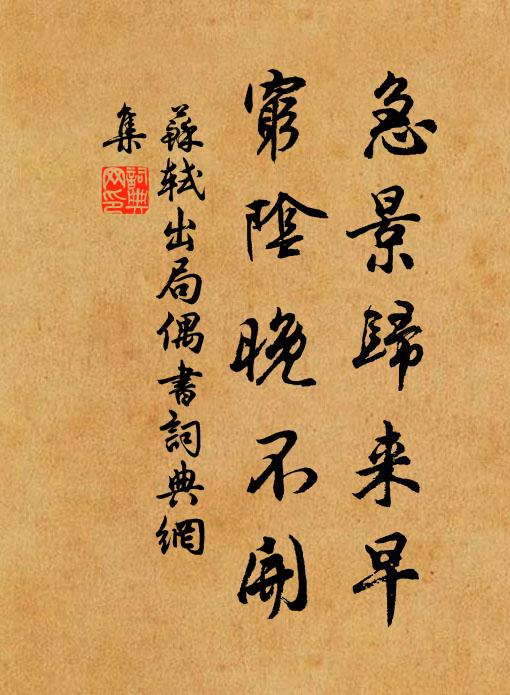 急景歸来早
窮陰晚不開
蘇軾出局偶書詞典網
集
詞典網印